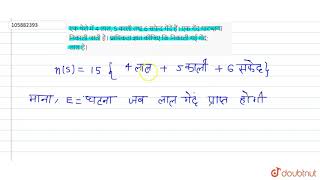 105882393
एक थैले में 4 लाल, 5 काली तथा 6 सफेद गेंदें हैं।
निकाली जाती है। प्रायिकता ज्ञात कीजिए कि निकाली गई गेंद
लाल है।
n(S) = 15 { 4 लाल + 5 काली + 6 सफेद }
माना, E = घटना जब लाल गेंद प्राप्त होगी
doubtnut